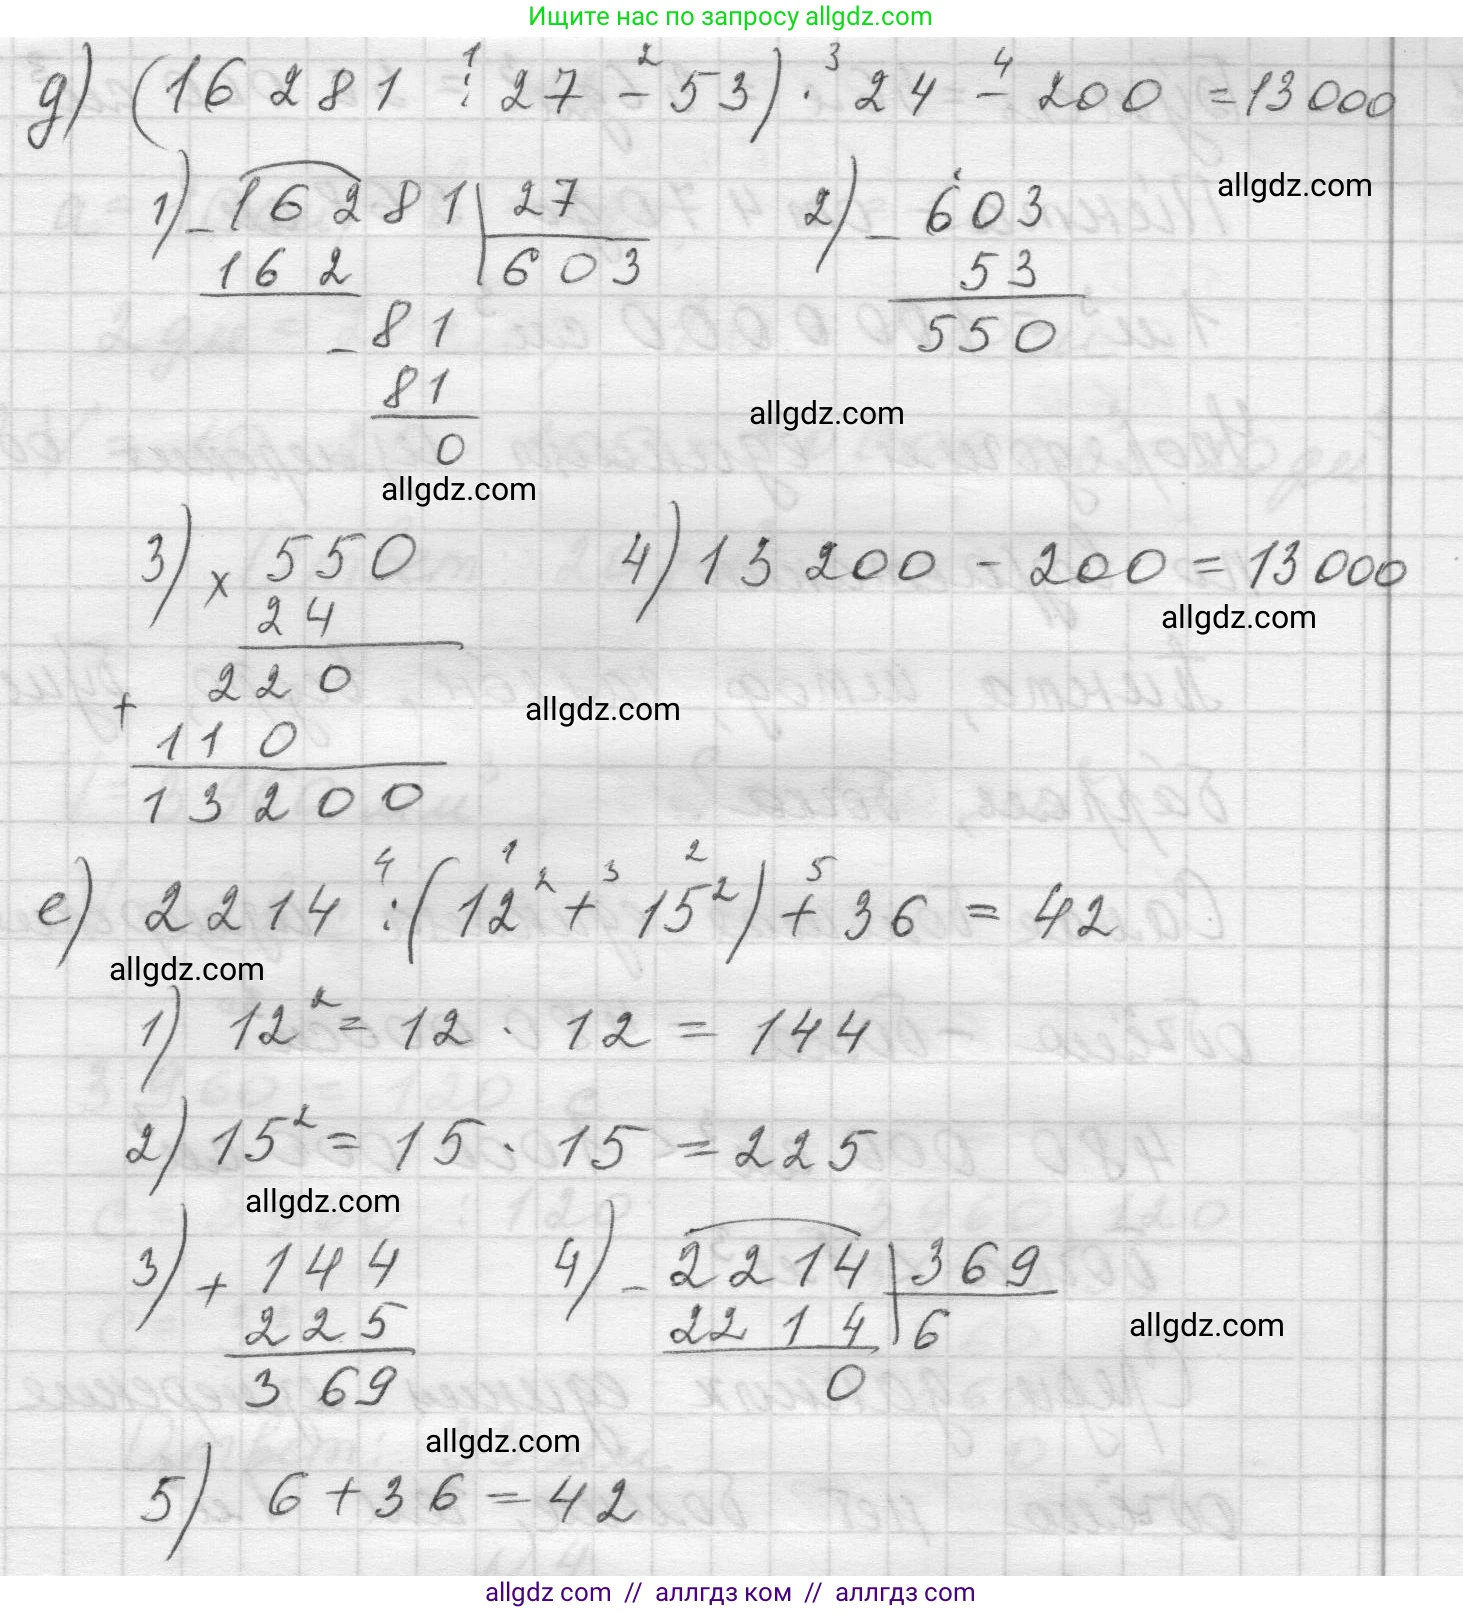 Ищите нас по запросу allgdz.com
1 2 3 4
д) (16 281 : 27 - 53) · 24 - 200 = 13000
allgdz.com
1) - 16281 | 27
162 603
- 81
81
0
2) - 603
53
550
allgdz.com
allgdz.com
3) × 550
24
+ 220
110
13200
4) 13 200 - 200 = 13000
allgdz.com
allgdz.com
4 1 3 2 5
е) 2214 : (12² + 15²) + 36 = 42
allgdz.com
1) 12² = 12 · 12 = 144
2) 15² = 15 · 15 = 225
allgdz.com
3) + 144
225
369
4) - 2214 | 369
2214 6
0
allgdz.com
allgdz.com
5) 6 + 36 = 42
allgdz com // аллгдз ком // аллгдз com